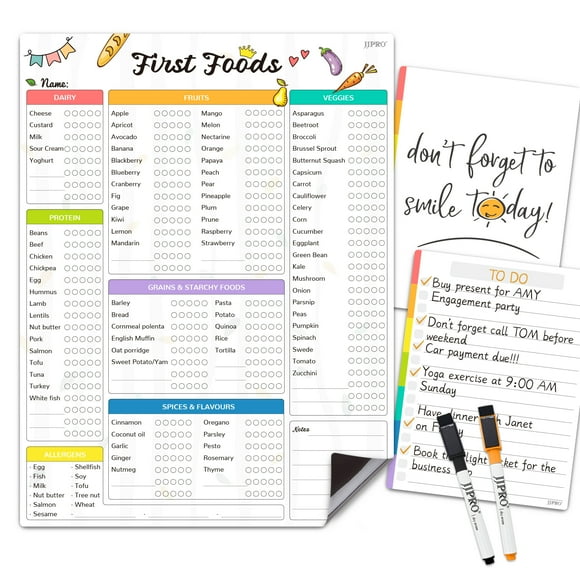 JJPRO
First Foods
Name:
DAIRY
Cheese
Custard
Milk
Sour Cream
Yoghurt
PROTEIN
Beans
Beef
Chicken
Chickpea
Egg
Hummus
Lamb
Lentils
Nut butter
Pork
Salmon
Tofu
Tuna
Turkey
White fish
ALLERGENS
· Egg · Shellfish
· Fish · Soy
· Milk · Tofu
· Nut butter · Tree nut
· Salmon · Wheat
· Sesame
FRUITS
Apple Mango
Apricot Melon
Avocado Nectarine
Banana Orange
Blackberry Papaya
Blueberry Peach
Cranberry Pear
Fig Pineapple
Grape Plum
Kiwi Prune
Lemon Raspberry
Mandarin Strawberry
GRAINS & STARCHY FOODS
Barley Pasta
Bread Potato
Cornmeal polenta Quinoa
English Muffin Rice
Oat porridge Tortilla
Sweet Potato/Yam
SPICES & FLAVOURS
Cinnamon Oregano
Coconut oil Parsley
Garlic Pesto
Ginger Rosemary
Nutmeg Thyme
VEGGIES
Asparagus
Beetroot
Broccoli
Brussel Sprout
Butternut Squash
Capsicum
Carrot
Cauliflower
Celery
Corn
Cucumber
Eggplant
Green Bean
Kale
Mushroom
Onion
Parsnip
Peas
Pumpkin
Spinach
Swede
Tomato
Zucchini
Notes
don't forget to
smile today!
TO DO
Buy present for AMY
Engagement party
Don't forget call TOM before
weekend
Car payment due!!!
Yoga exercise at 9:00 AM
Sunday
Have dinner with Janet
on
Book the flight ticket for the
business
JJPRO
JJPRO
JJPRO